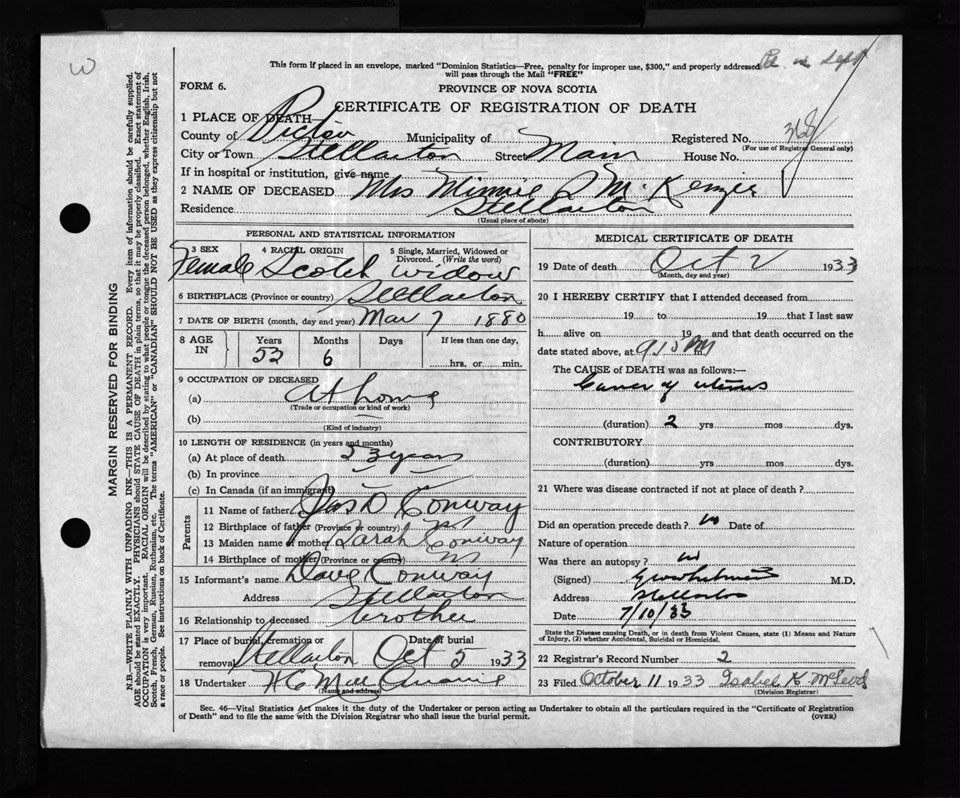 W
This form if placed in an envelope, marked "Dominion Statistics—Free, penalty for improper use, $300," and properly addressed
will pass through the Mail "FREE"
FORM 6.
PROVINCE OF NOVA SCOTIA
CERTIFICATE OF REGISTRATION OF DEATH
368
1 PLACE OF DEATH—
County of Pictou Municipality of Registered No.
(For use of Registrar General only)
City or Town Stellarton Street Main House No.
If in hospital or institution, give name
2 NAME OF DECEASED Mrs Minnie McKenzie
Residence Stellarton
(Usual place of abode)
PERSONAL AND STATISTICAL INFORMATION
3 SEX 4 RACIAL ORIGIN 5 Single, Married, Widowed or Divorced. (Write the word)
Female Scotch widow
6 BIRTHPLACE (Province or country) Stellarton
7 DATE OF BIRTH (month, day and year) Mar 7 1880
8 AGE IN Years Months Days If less than one day,
53 6 hrs. or min.
9 OCCUPATION OF DECEASED
(a) At home
(Trade or occupation or kind of work)
(b)
(Kind of industry)
10 LENGTH OF RESIDENCE (in years and months)
(a) At place of death 53 years
(b) In province
(c) In Canada (if an immigrant)
Parents
11 Name of father Jas D Conway
12 Birthplace of father (Province or country) NS
13 Maiden name of mother Sarah Conway
14 Birthplace of mother (Province or country) NS
15 Informant's name Dave Conway
Address Stellarton
16 Relationship to deceased brother
17 Place of burial, cremation or removal Date of burial
Stellarton Oct 5 1933
18 Undertaker
(Name and address)
MEDICAL CERTIFICATE OF DEATH
19 Date of death Oct 2 1933
(Month, day and year)
20 I HEREBY CERTIFY that I attended deceased from
19 to 19 that I last saw
h alive on 19 and that death occurred on the
date stated above, at M
The CAUSE of DEATH was as follows:—
Cancer of uterus
(duration) 2 yrs mos dys.
CONTRIBUTORY
(duration) yrs. mos. dys.
21 Where was disease contracted if not at place of death?
Did an operation precede death? no Date of
Nature of operation
Was there an autopsy? no
(Signed) M.D.
Address Stellarton
Date 7/10/33
State the Disease causing Death, or in death from Violent Causes, state (1) Means and Nature of Injury, (2) whether Accidental, Suicidal or Homicidal.
22 Registrar's Record Number 2
23 Filed October 11 1933 Isabel K. McLeod
(Division Registrar)
Sec. 46—Vital Statistics Act makes it the duty of the Undertaker or person acting as Undertaker to obtain all the particulars required in the "Certificate of Registration
of Death" and to file the same with the Division Registrar who shall issue the burial permit. (OVER)
MARGIN RESERVED FOR BINDING
N.B.—WRITE PLAINLY WITH UNFADING INK—THIS IS A PERMANENT RECORD. Every item of information should be carefully supplied.
AGE should be stated EXACTLY. PHYSICIANS should STATE CAUSE OF DEATH in plain terms, so that it may be properly classified. Exact statement of
OCCUPATION is very important. RACIAL ORIGIN will be described by stating to what people or tongue the deceased person belonged, whether English, Irish,
Scotch, French, German, Russian, Ruthenian, etc. The terms "AMERICAN" or "CANADIAN" SHOULD NOT BE USED as they express citizenship but not
a race or people. See instructions on back of Certificate.